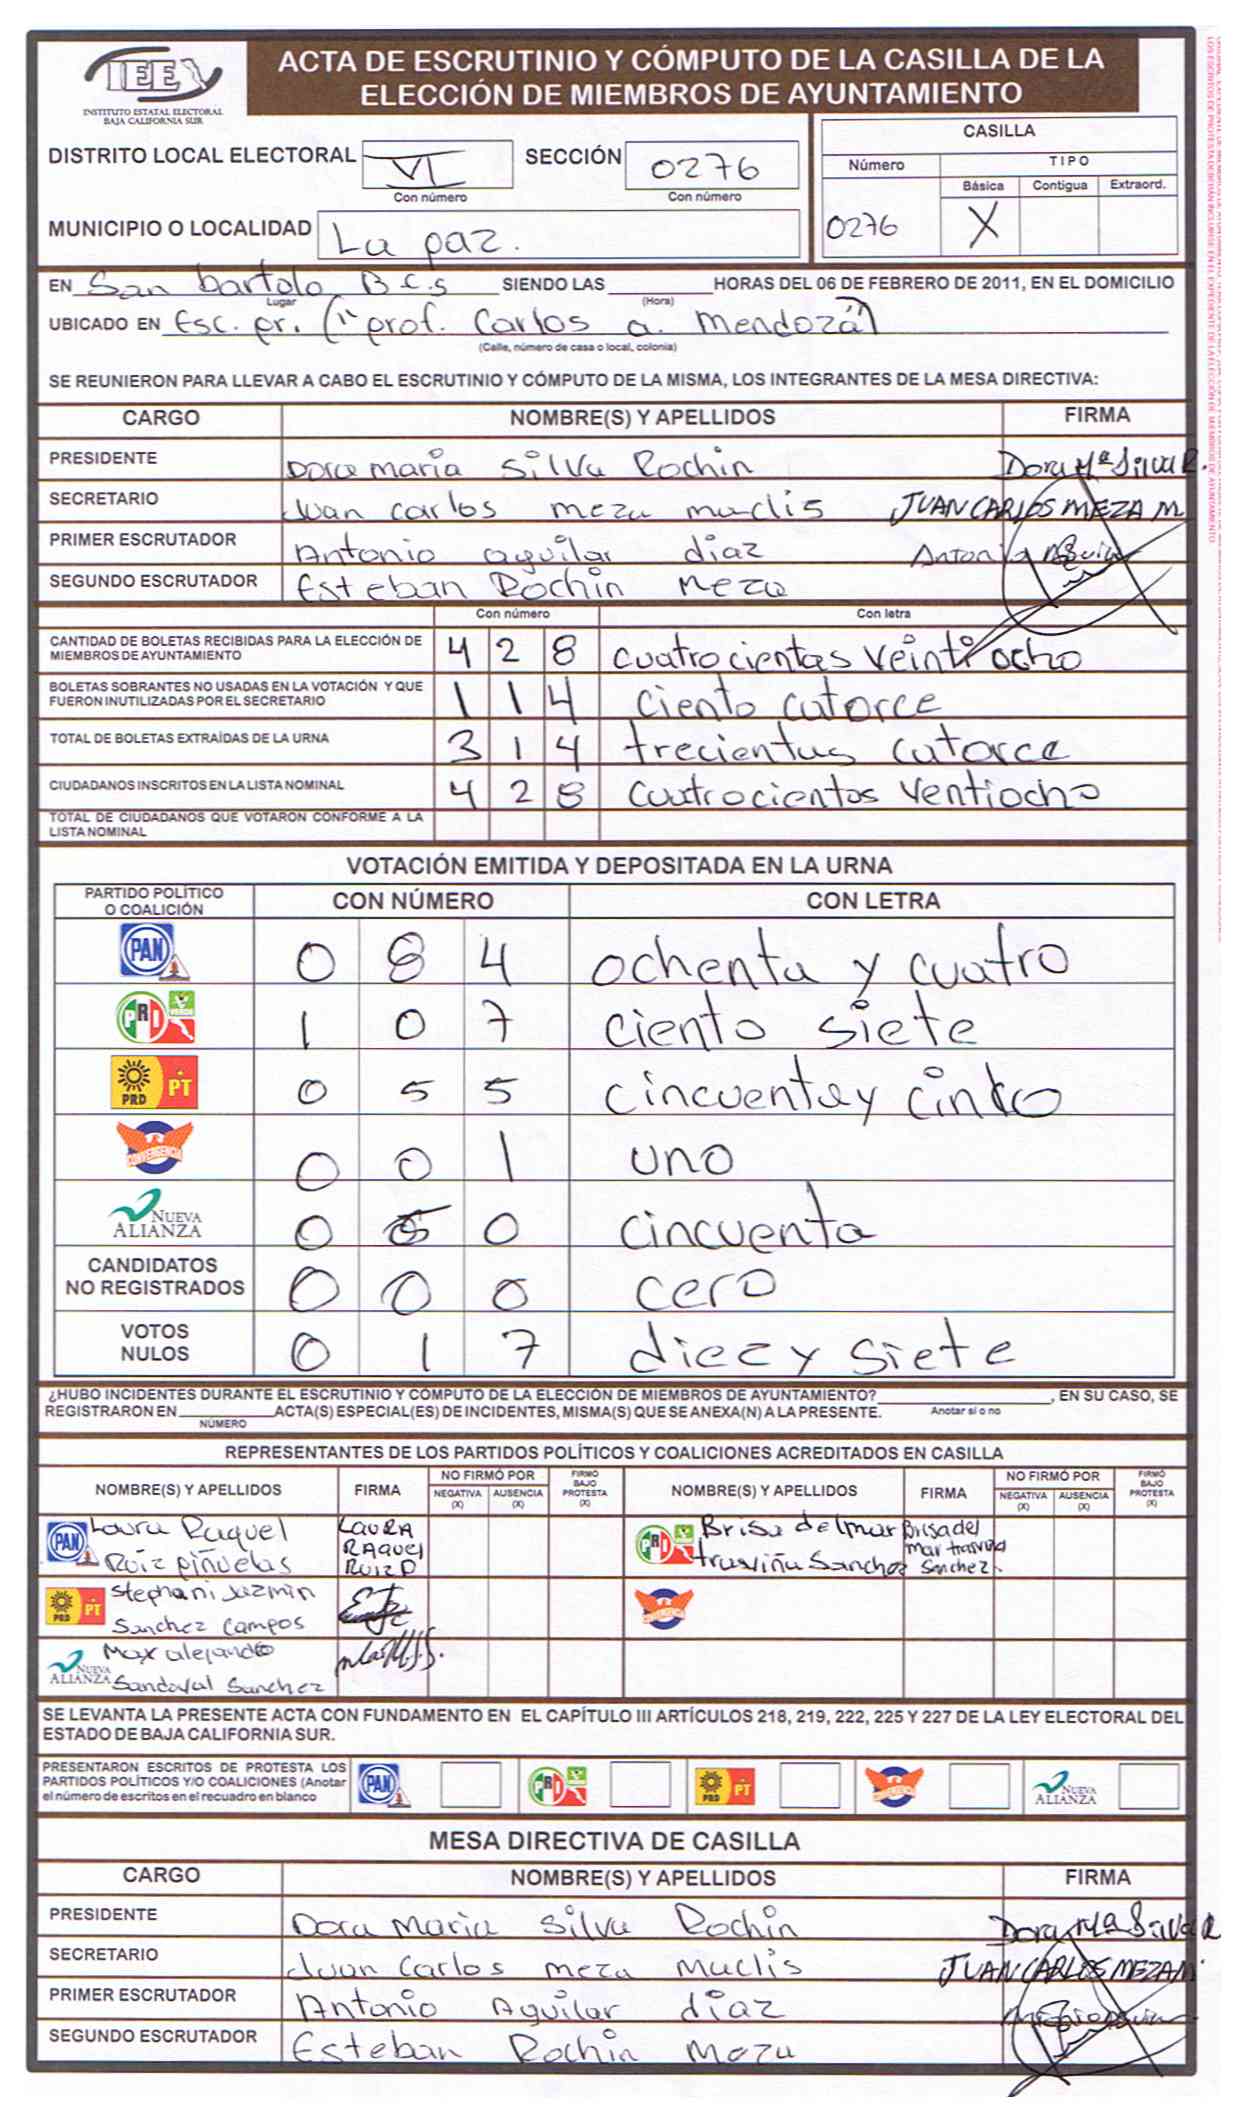 IEE
INSTITUTO ESTATAL ELECTORAL
BAJA CALIFORNIA SUR
ACTA DE ESCRUTINIO Y CÓMPUTO DE LA CASILLA DE LA
ELECCIÓN DE MIEMBROS DE AYUNTAMIENTO
DISTRITO LOCAL ELECTORAL VI SECCIÓN 0276
Con número Con número
MUNICIPIO O LOCALIDAD La paz.
CASILLA
Número TIPO
Básica Contigua Extraord.
0276 X
EN San bartolo B.C.S SIENDO LAS HORAS DEL 06 DE FEBRERO DE 2011, EN EL DOMICILIO
Lugar (Hora)
UBICADO EN Esc. pr. ("prof. Carlos a. Mendoza")
(Calle, número de casa o local, colonia)
SE REUNIERON PARA LLEVAR A CABO EL ESCRUTINIO Y CÓMPUTO DE LA MISMA, LOS INTEGRANTES DE LA MESA DIRECTIVA:
CARGO NOMBRE(S) Y APELLIDOS FIRMA
PRESIDENTE Dora maria Silva Rochin Dora Mª Silva R.
SECRETARIO Juan carlos meza maclis JUAN CARLOS MEZA M
PRIMER ESCRUTADOR Antonio aguilar diaz
SEGUNDO ESCRUTADOR Esteban Rochin Meza
Con número Con letra
CANTIDAD DE BOLETAS RECIBIDAS PARA LA ELECCIÓN DE
MIEMBROS DE AYUNTAMIENTO 4 2 8 cuatrocientas veinti ocho
BOLETAS SOBRANTES NO USADAS EN LA VOTACIÓN Y QUE
FUERON INUTILIZADAS POR EL SECRETARIO 1 1 4 ciento catorce
TOTAL DE BOLETAS EXTRAÍDAS DE LA URNA 3 1 4 trecientas catorce
CIUDADANOS INSCRITOS EN LA LISTA NOMINAL 4 2 8 cuatrocientos ventiocho
TOTAL DE CIUDADANOS QUE VOTARON CONFORME A LA
LISTA NOMINAL
VOTACIÓN EMITIDA Y DEPOSITADA EN LA URNA
PARTIDO POLÍTICO
O COALICIÓN CON NÚMERO CON LETRA
PAN 0 8 4 ochenta y cuatro
PRI VERDE 1 0 7 ciento siete
PRD PT 0 5 5 cincuenta y cinco
CONVERGENCIA 0 0 1 uno
NUEVA ALIANZA 0 5 0 cincuenta
CANDIDATOS
NO REGISTRADOS 0 0 0 cero
VOTOS
NULOS 0 1 7 diez y siete
¿HUBO INCIDENTES DURANTE EL ESCRUTINIO Y CÓMPUTO DE LA ELECCIÓN DE MIEMBROS DE AYUNTAMIENTO? , EN SU CASO, SE
REGISTRARON EN ACTA(S) ESPECIAL(ES) DE INCIDENTES, MISMA(S) QUE SE ANEXA(N) A LA PRESENTE. Anotar sí o no
NÚMERO
REPRESENTANTES DE LOS PARTIDOS POLÍTICOS Y COALICIONES ACREDITADOS EN CASILLA
NOMBRE(S) Y APELLIDOS FIRMA NO FIRMÓ POR NEGATIVA (X) AUSENCIA (X) FIRMÓ BAJO PROTESTA (X) NOMBRE(S) Y APELLIDOS FIRMA NO FIRMÓ POR NEGATIVA (X) AUSENCIA (X) FIRMÓ BAJO PROTESTA (X)
PAN Laura Raquel Ruiz piñuelas LAURA RAQUEL RUIZ P
PRI VERDE Brisa delmar trasviña Sanchez Brisa del mar trasviña Sanchez.
PRD PT Stephani Jazmin Sanchez Campos
CONVERGENCIA
NUEVA ALIANZA Max alejandro Sandoval Sanchez
SE LEVANTA LA PRESENTE ACTA CON FUNDAMENTO EN EL CAPÍTULO III ARTÍCULOS 218, 219, 222, 225 Y 227 DE LA LEY ELECTORAL DEL
ESTADO DE BAJA CALIFORNIA SUR.
PRESENTARON ESCRITOS DE PROTESTA LOS
PARTIDOS POLÍTICOS Y/O COALICIONES (Anotar
el número de escritos en el recuadro en blanco
PAN PRI VERDE PRD PT CONVERGENCIA NUEVA ALIANZA
MESA DIRECTIVA DE CASILLA
CARGO NOMBRE(S) Y APELLIDOS FIRMA
PRESIDENTE Dora Maria Silva Rochin Dora Mª Silva R
SECRETARIO Juan Carlos meza Maclis JUAN CARLOS MEZA M.
PRIMER ESCRUTADOR Antonio Aguilar diaz
SEGUNDO ESCRUTADOR Esteban Rochin Meza